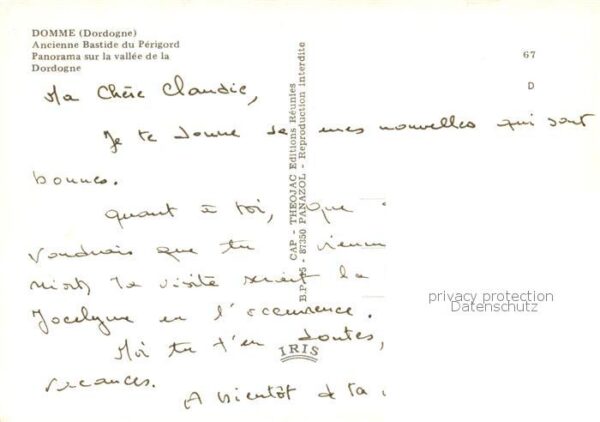 DOMME (Dordogne)
Ancienne Bastide du Périgord
Panorama sur la vallée de la
Dordogne
67
D
CAP - THEOJAC Editions Réunies
B.P. 95 - 87350 PANAZOL - Reproduction interdite
IRIS
Ma Chère Claudie,
Je te donne de mes nouvelles qui sont
bonnes.
Quant à toi, que
voudrais que tu
la visite la
Jocelyne en l'occurrence.
Moi tu t'en doutes,
vacances.
A bientôt de ta
privacy protection
Datenschutz